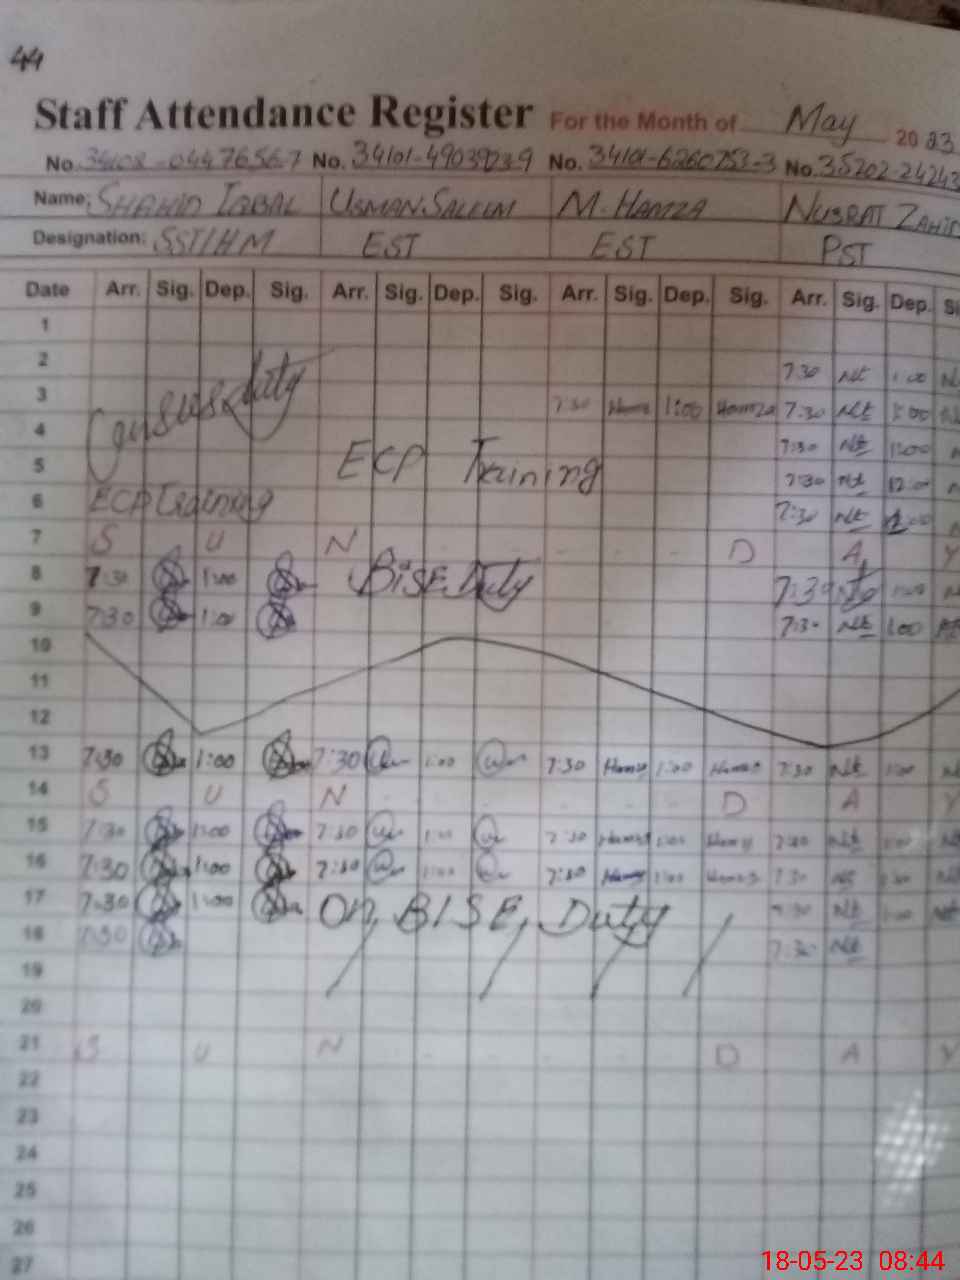 44
Staff Attendance Register For the Month of May 2023
No. 34101-49039239 No. 34101-6260753-3 No. 35202-24243
Name: SHAHID IQBAL USMAN SALEEM M. HAMZA NUSRAT ZAHID
Designation: SST/HM EST EST PST
Date Arr. Sig. Dep. Sig. Arr. Sig. Dep. Sig. Arr. Sig. Dep. Sig. Arr. Sig. Dep. Si
1
2 7:30 1:00
3 Census duty 7:30 Hamza 1:00 Hamza 7:30 1:00
4 7:30 1:00
5 ECP Training 7:30 12:00
6 ECP Training 7:30
7 S U N D A Y
8 7:30 1:00 BISE Duty 7:30 1:00
9 7:30 1:00 7:30 1:00
10
11
12
13 7:30 1:00 7:30 1:00 7:30 Hamza 1:00 Hamza 7:30 1:00
14 S U N D A Y
15 7:30 1:00 7:30 1:00 7:30 Hamza 1:00 Hamza 7:30 1:00
16 7:30 1:00 7:30 1:00 7:30 Hamza 1:00 Hamza 7:30 1:00
17 7:30 1:00 On BISE Duty 7:30 1:00
18 7:30 7:30
19
20
21 S U N D A Y
22
23
24
25
26
27
18-05-23 08:44